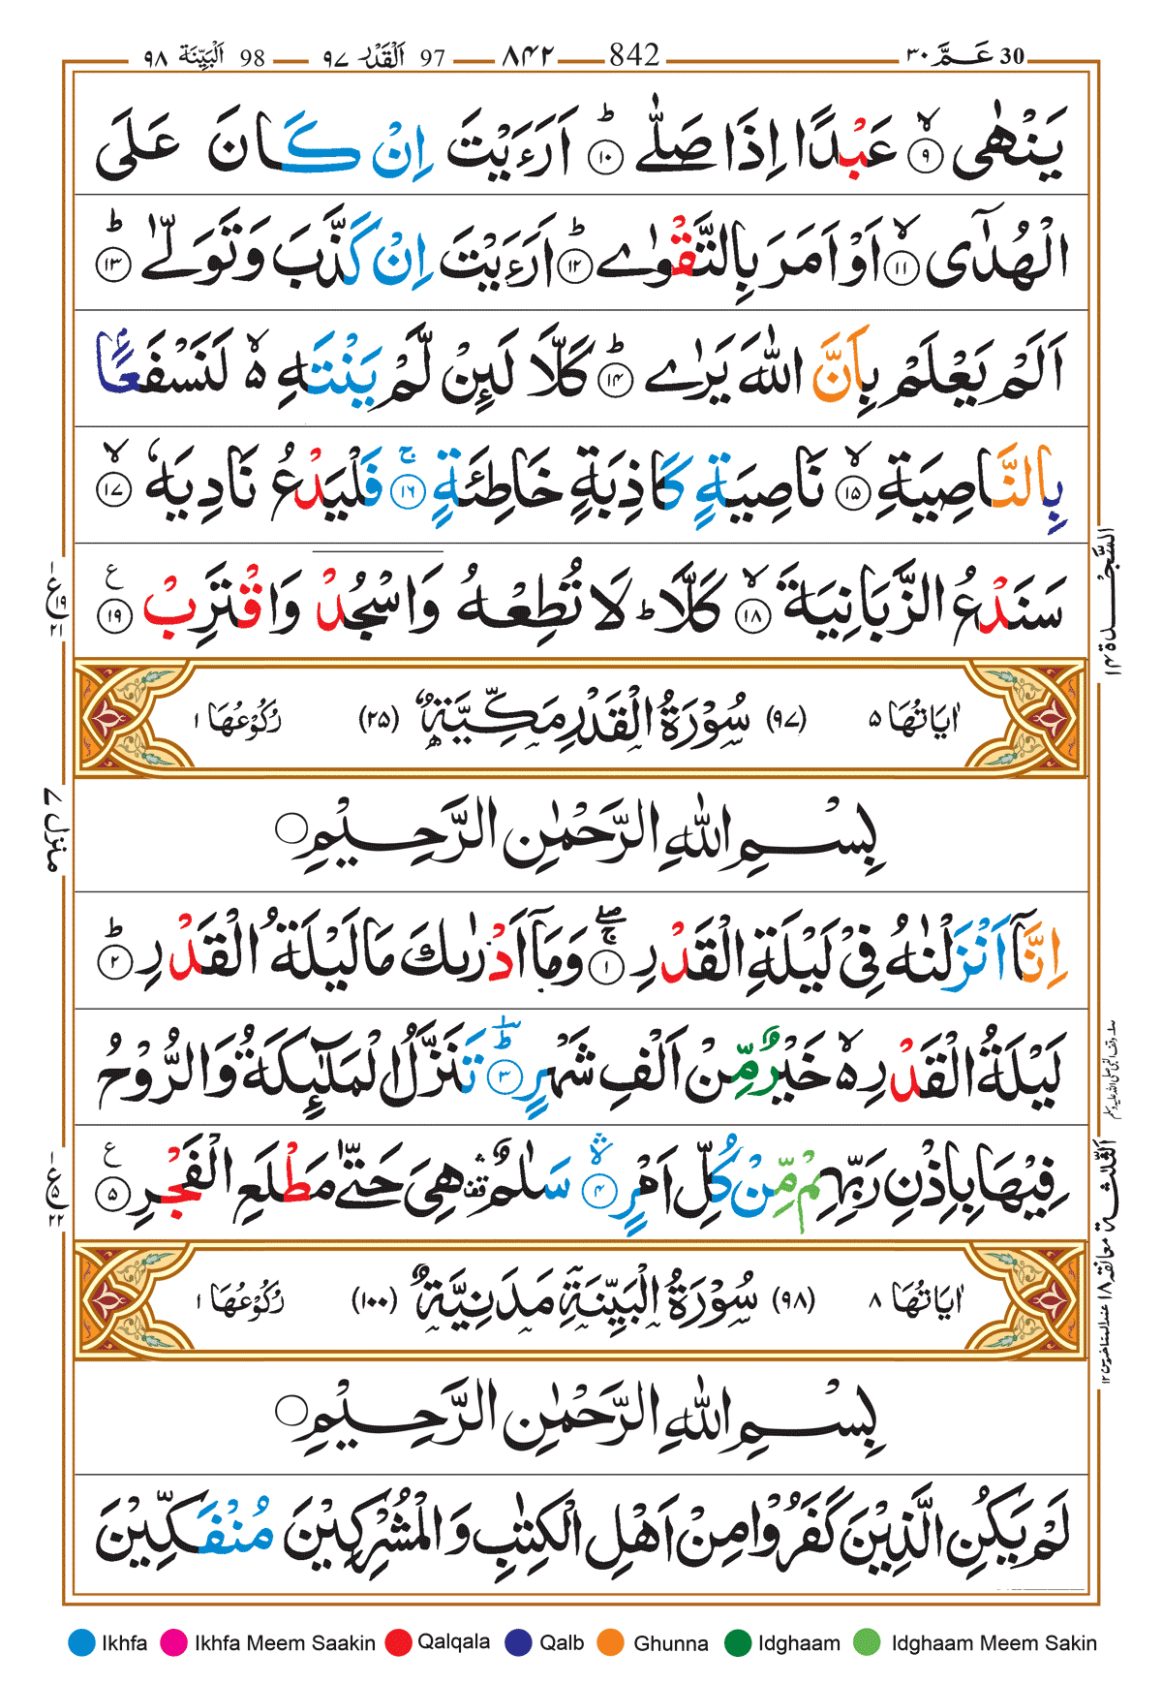 30 عَمَّ ٣٠ 842 ٨٤٢ 97 اَلْقَدْر ٩٧ 98 اَلْبَيِّنَة ٩٨
يَنْهٰى ۙ‏ ٩ عَبْدًا اِذَا صَلّٰى ؕ‏ ١٠ اَرَءَيْتَ اِنْ كَانَ عَلَى
الْهُدٰٓى ۙ‏ ١١ اَوْ اَمَرَ بِالتَّقْوٰى ؕ‏ ١٢ اَرَءَيْتَ اِنْ كَذَّبَ وَتَوَلّٰى ؕ‏ ١٣
اَلَمْ يَعْلَمْ بِاَنَّ اللّٰهَ يَرٰى ؕ‏ ١٤ كَلَّا لَئِنْ لَّمْ يَنْتَهِ ۙ۬ لَنَسْفَعًۢا
بِالنَّاصِيَةِ ۙ‏ ١٥ نَاصِيَةٍ كَاذِبَةٍ خَاطِئَةٍ ۚ‏ ١٦ فَلْيَدْعُ نَادِيَهٗ ۙ‏ ١٧
سَنَدْعُ الزَّبَانِيَةَ ۙ‏ ١٨ كَلَّا ؕ لَا تُطِعْهُ وَاسْجُدْ وَاقْتَرِبْ ١٩
السَّجْدَة ١٤
ع ١٩
اٰيَاتُهَا ٥ (٩٧) سُوْرَةُ الْقَدْرِ مَكِّيَّةٌ (٢٥) رُكُوْعُهَا ١
منزل ٧
بِسْمِ اللّٰهِ الرَّحْمٰنِ الرَّحِيْمِ
اِنَّاۤ اَنْزَلْنٰهُ فِيْ لَيْلَةِ الْقَدْرِ ۖۚ‏ ١ وَمَاۤ اَدْرٰىكَ مَا لَيْلَةُ الْقَدْرِ ؕ‏ ٢
لَيْلَةُ الْقَدْرِ ۙ۬ خَيْرٌ مِّنْ اَلْفِ شَهْرٍ ؕ‏ ٣ تَنَزَّلُ الْمَلٰٓئِكَةُ وَالرُّوْحُ
فِيْهَا بِاِذْنِ رَبِّهِمْ مِّنْ كُلِّ اَمْرٍ ۛۙ‏ ٤ سَلٰمٌ ۛ قف هِيَ حَتّٰى مَطْلَعِ الْفَجْرِ ٥
ع ٥
اٰيَاتُهَا ٨ (٩٨) سُوْرَةُ الْبَيِّنَةِ مَدَنِيَّةٌ (١٠٠) رُكُوْعُهَا ١
بِسْمِ اللّٰهِ الرَّحْمٰنِ الرَّحِيْمِ
لَمْ يَكُنِ الَّذِيْنَ كَفَرُوْا مِنْ اَهْلِ الْكِتٰبِ وَالْمُشْرِكِيْنَ مُنْفَكِّيْنَ
Ikhfa Ikhfa Meem Saakin Qalqala Qalb Ghunna Idghaam Idghaam Meem Sakin